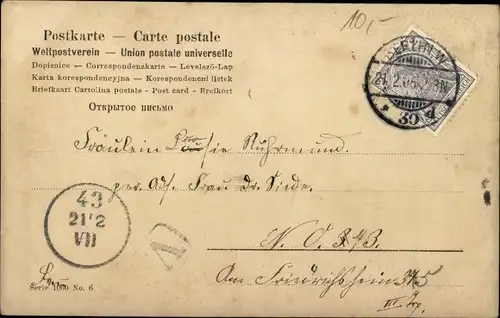 10,-
Postkarte — Carte postale
Weltpostverein — Union postale universelle
Dopisnice — Correspondenzkarte — Levelező-Lap
Karta korespondencyjna — Korespondeneni listek
Briefkaart Cartolina postale - Post card - Brefkort
Открытое письмо
BERLIN W.
30
Fräulein Louise Ruhrmund.
per. Adr. Frau Dr. Siede.
43
21/2
VII
N. O. 343.
Am Friedrichshein
III Trp.
Serie 1060 No. 6.